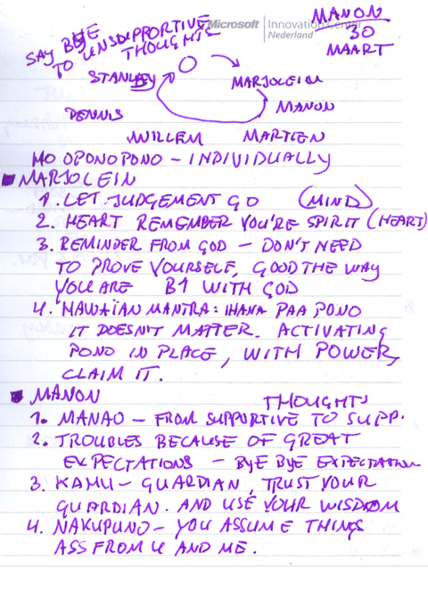 MANON
30
MAART
Microsoft Innovation Center
Nederland
SAY BYE
TO UNSUPPORTIVE
THOUGHTS
STANLEY
MARJOLEIN
DENNIS
MANON
WILLEM MARTIEN
HO OPONOPONO - INDIVIDUALLY
MARJOLEIN
1. LET JUDGEMENT GO (MIND)
2. HEART REMEMBER YOU'RE SPIRIT (HEART)
3. REMINDER FROM GOD - DON'T NEED
TO PROVE YOURSELF, GOOD THE WAY
YOU ARE B1 WITH GOD
4. HAWAÏAN MANTRA: IHANA PAA PONO
IT DOESN'T MATTER. ACTIVATING
PONO IN PLACE, WITH POWER,
CLAIM IT.
MANON THOUGHTS
1. MANAO - FROM SUPPORTIVE TO SUPP.
2. TROUBLES BECAUSE OF GREAT
EXPECTATIONS - BYE BYE EXPECTATION
3. KAHU - GUARDIAN, TRUST YOUR
GUARDIAN. AND USE YOUR WISDOM
4. NAKUPUNO - YOU ASSUME THINGS
ASS FROM U AND ME.